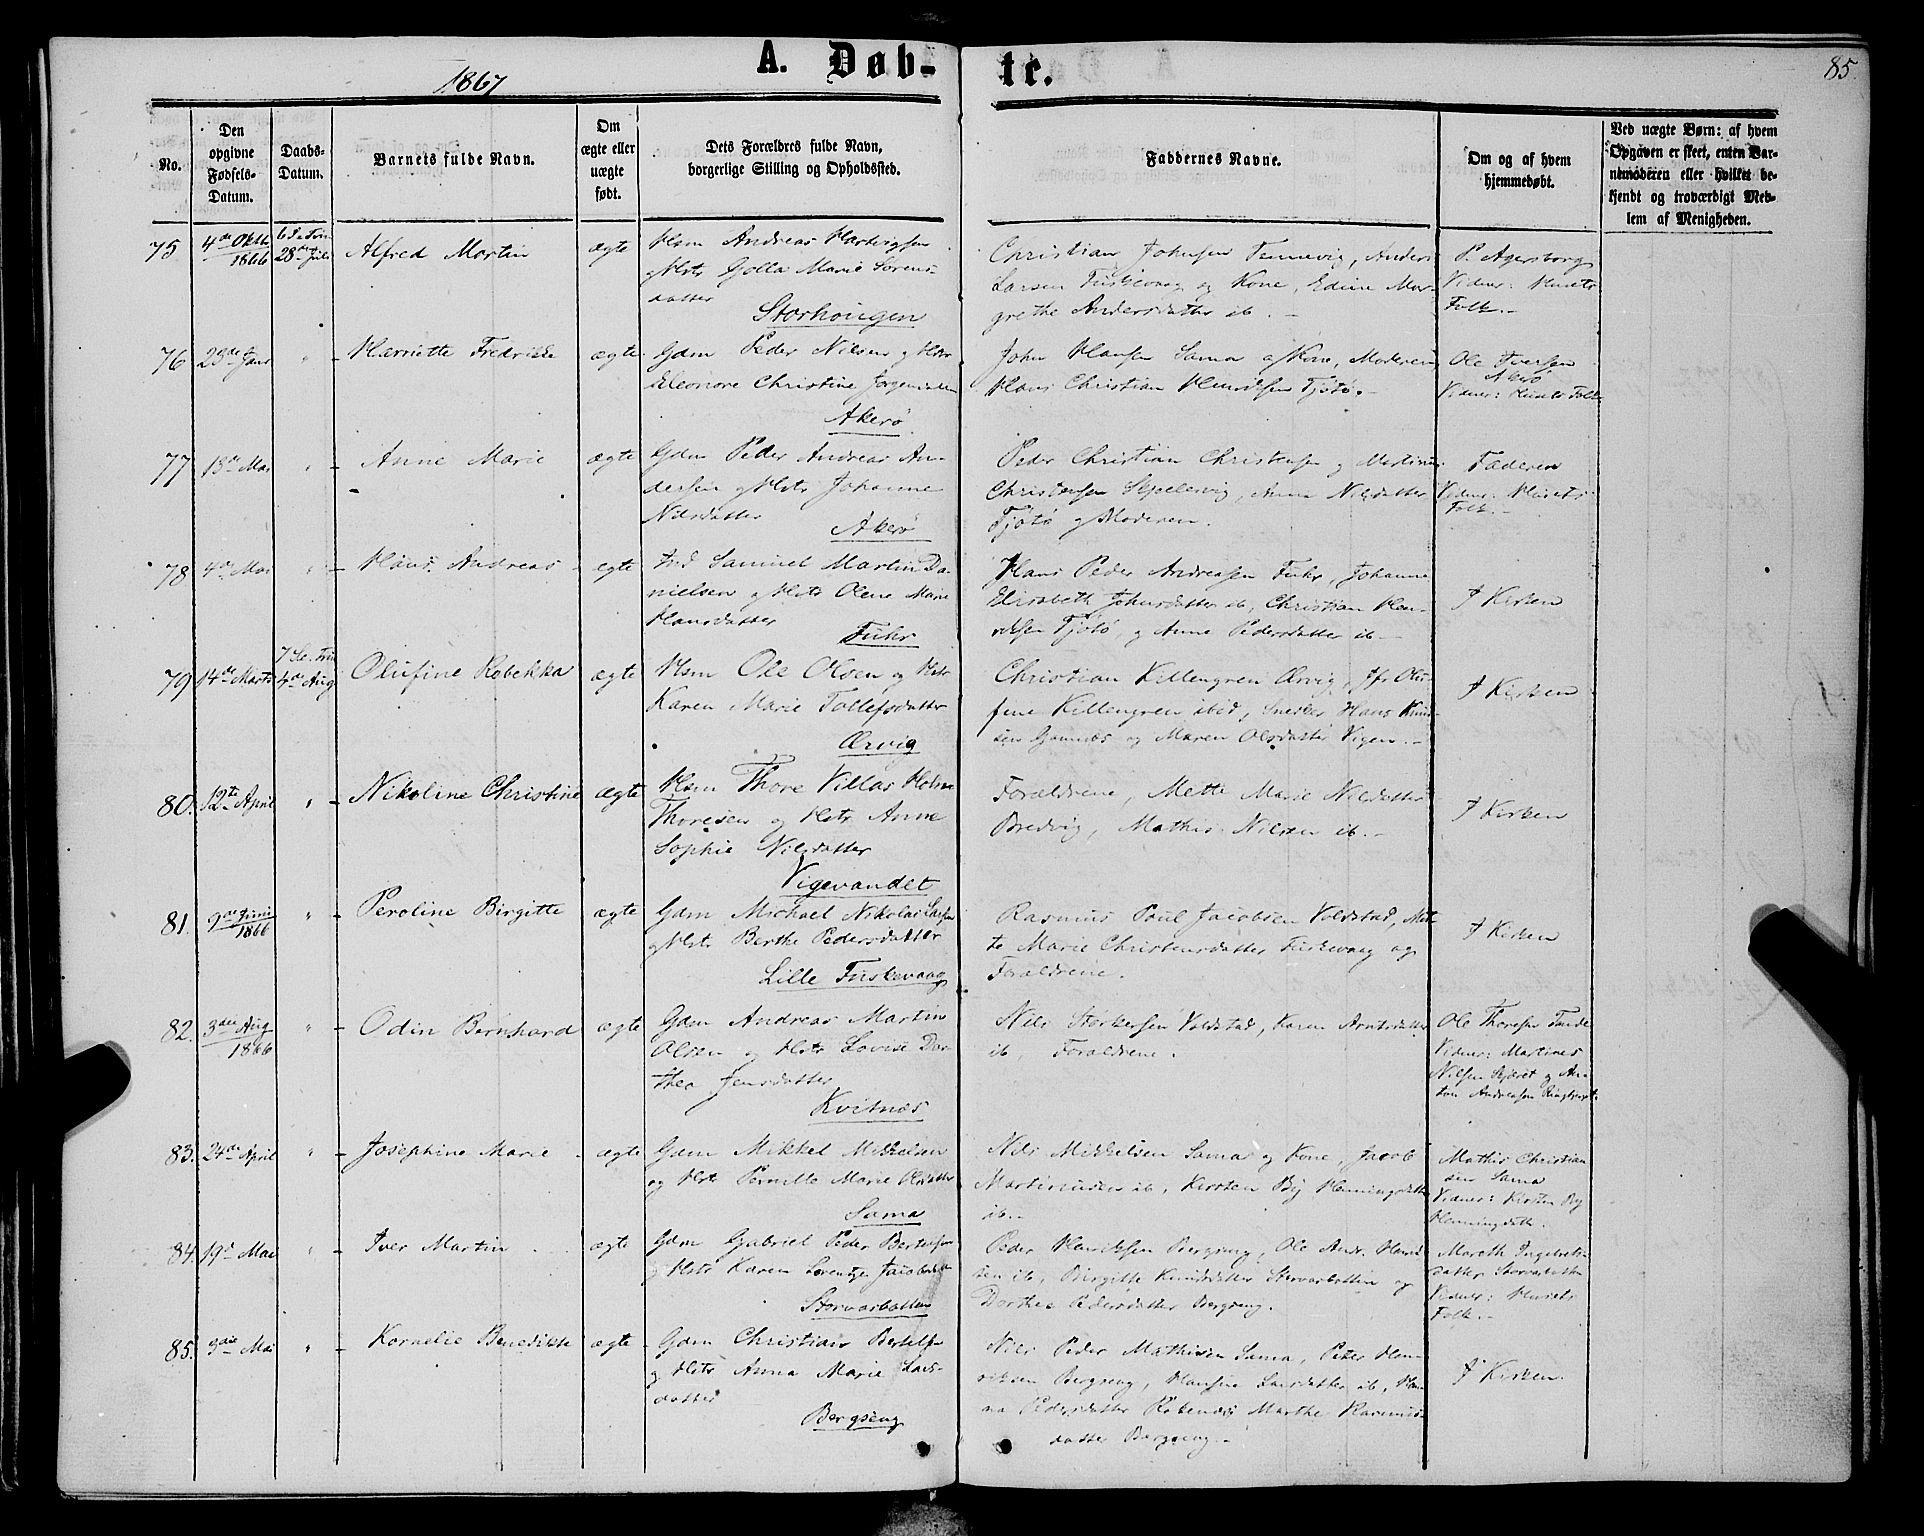 1867
A. Døb-
te.
85
No.
Den
opgivne
Fødsels-
Datum.
Daabs-
Datum.
Barnets fulde Navn.
Om
ægte eller
uægte
født.
Dets Forældres fulde Navn,
borgerlige Stilling og Opholdssted.
Faddernes Navne.
Om og af hvem
hjemmedøbt.
Ved uægte Børn: af hvem
Opgaven er skeet, enten Bar-
nemoderen eller hvilket be-
kjendt og troværdigt Med-
lem af Menigheden.
75
4de Oktb
1866
6 S. e. Trin
28de Juli
Alfred Martin
ægte
Hsm Andreas Hartvigsen
og Hstr Golla Marie Sørens-
datter
Storhougen
Christian Johnsen Tennevig, Anders
Larsen Fuskevaag og Kone, Edine Mar-
grethe Andersdatter ib. -
P. Agersborg
Vidner: Husets
Folk. -
76
23de Janr
" -
Harriette Fredrikke
ægte
Gdm Peder Nilsen og Hstr
Eleonore Christine Jørgensdatter
Akerø
John Hansen Sama og Kone, Moderen
Hans Christian Henriksen Tjøtø. -
Ole Iversen
Akerø
Vidner: Husets Folk
77
13de Mai
" -
Anne Marie
ægte
Gdm Peder Andreas An-
dersen og Hstr Johanne
Nilsdatter
Akerø
Peder Christian Christensen og Martinus
Christensen Skjellesvig, Anne Nilsdatter
Tjøtø og Moderen.
Faderen
Vidner: Husets
Folk. -
78
4de Mai
" -
Hans Andreas
ægte
Ind Samuel Martin Da-
nielsen og Hstr Olene Marie
Hansdatter
Fuhr
Hans Peder Andreasen Fuhr, Johanne
Elisabeth Johnsdatter ib, Christian Hen-
riksen Tjøtø, og Anne Pedersdatter ib. -
I Kirken
79
14de Marts
7 S. e. Trin
4de Aug
Olufine Rebekka
ægte
Hsm Ole Olsen og Hstr
Karen Marie Tollefsdatter
Ørvig
Christian Killengren Ørvig, Jfr Olu-
fine Killengren ibid, Snedker Hans Knud-
sen og Maren Olsdatter Vigen. -
I Kirken
80.
12te April
" -
Nikoline Christine
ægte
Hsm Thore Villas Holm
Thoresen og Hstr Anne
Sophie Nilsdatter
Vigevandet
Forældrene, Mette Marie Nilsdatter
Bredvig, Mathis Nilsen ib. -
I Kirken
81.
9de Juni
1866
" -
Peroline Birgitte
ægte
Gdm Michael Nikolai Larsen
og Hstr Berthe Pedersdatter
Lille Fuskevaag
Rasmus Paul Jacobsen Voldstad, Met-
te Marie Christensdatter Fuskevaag og
Forældrene.
I Kirken
82.
3die Aug
1866
" -
Odin Bernhard
ægte
Gdm Andreas Martin
Olsen og Hstr Lovise Dor-
thea Jensdatter
Kvitnæs
Nils Størkersen Voldstad, Karen Arntsdatter
ib, Forældrene.
Ole Thoresen
Vidner: Martines
Nilsen og An-
ton Andreasen
83.
24de April
" -
Josephine Marie
ægte
Gdm Mikkel Mikkelsen
og Hstr Pernille Marie Olsdatter
Sama
Nils Mikkelsen Sama og Kone, Jacob
Martinussen ib, Kirsten By Henningsdatter
ib. -
Mathis Christian
sen Sama
Vidner: Kirsten By
Henningsdatter.
84.
19de Mai
" -
Iver Martin
ægte
Gdm Gabriel Peder Bertelsen
og Hstr Karen Lorentze Jacobsdatter
Storvarbatten
Peder Henriksen Bergseng, Ole Andr. Henrik-
sen ib, Birgitte Knudsdatter Storvarbatten og
Dorthea Pedersdatter Bergseng.
Mareth Ingebrets-
datter Storvarbatten
Vidner: Husets
Folk. -
85.
9de Mai
" -
Kornelie Benedikte
ægte
Gdm Christian Bertelsen
og Hstr Anna Marie Lars-
datter
Bergseng
Nils Peder Mathisen Sama, Peter Hen-
riksen Bergseng, Hansine Larsdatter ib, Han-
na Pedersdatter Marthe Rasmus-
datter Bergseng. -
I Kirken.